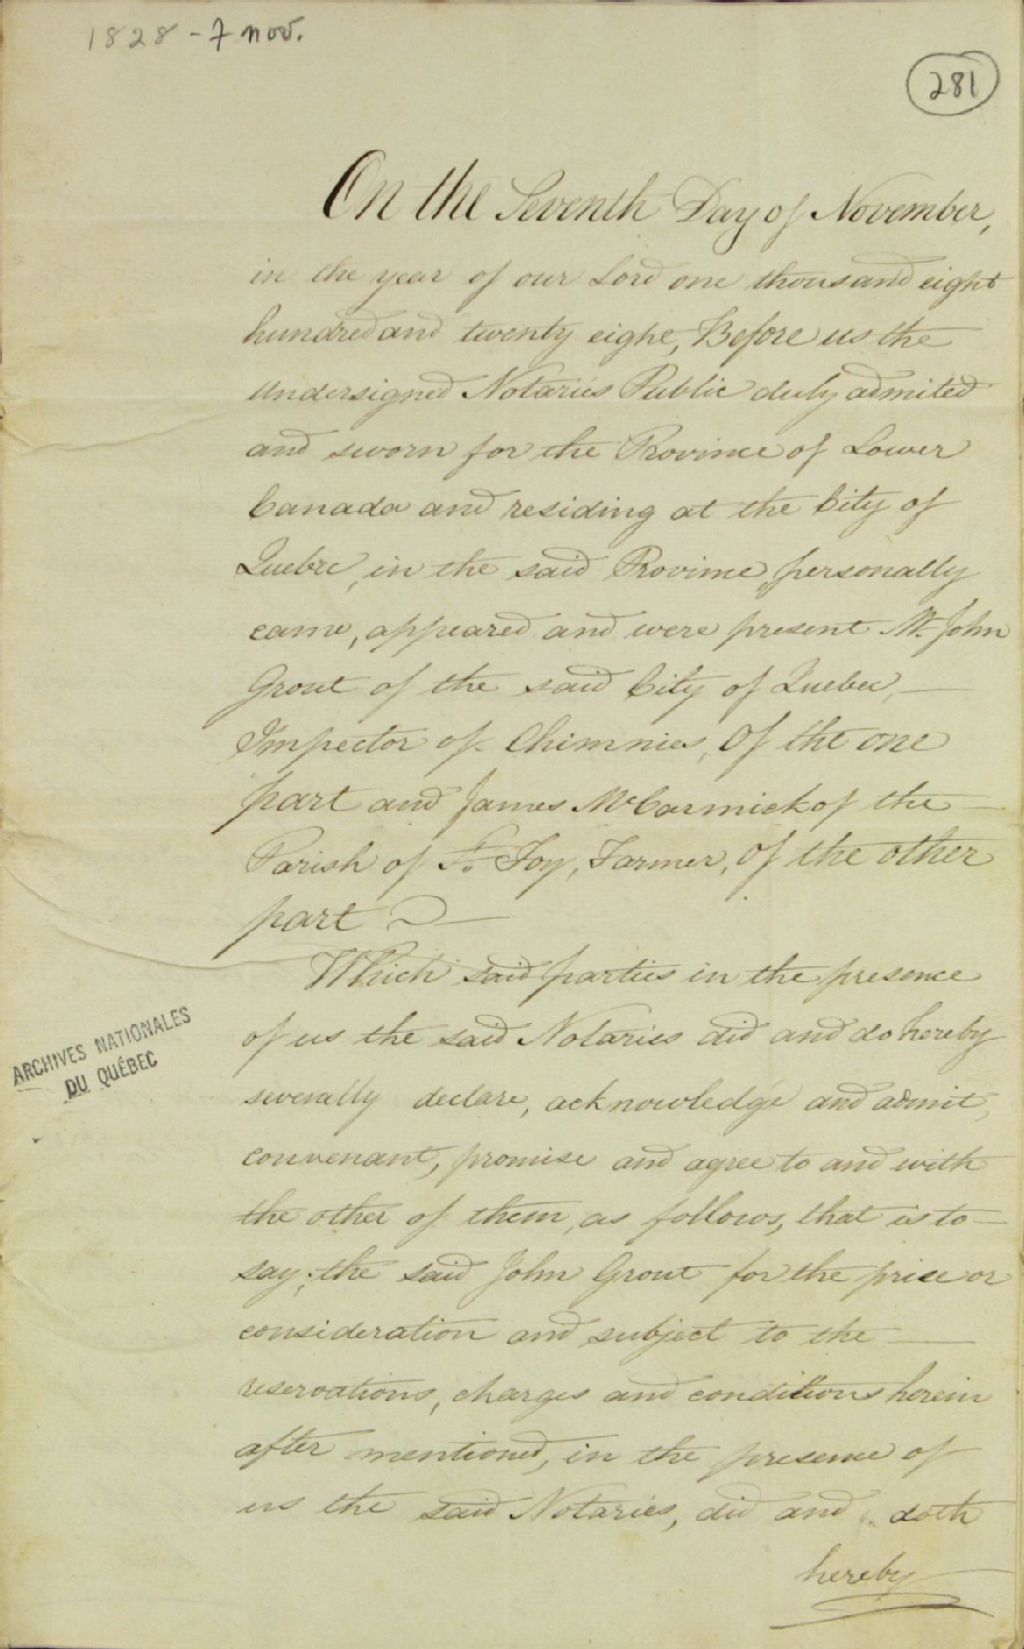 1828 - 7 nov.
281
On the Seventh Day of November,
in the year of our Lord one thousand eight
hundred and twenty eight, Before us the
undersigned Notaries Public duly admited
and sworn for the Province of Lower
Canada and residing at the City of
Quebec, in the said Province, personally
came, appeared and were present Mr. John
Grout of the said City of Quebec, —
Inspector of Chimnies, Of the one
part and James McCormick of the —
Parish of St. Foy, Farmer, Of the other
part —
Which said parties in the presence
of us the said Notaries did and do hereby
severally declare, acknowledge and admit,
convenant, promise and agree to and with
the other of them, as follows, that is to —
say; the said John Grout for the price or
consideration and subject to the —
reservations, charges and conditions herein
after mentioned, in the presence of
us the said Notaries, did and doth
hereby
ARCHIVES NATIONALES
DU QUÉBEC